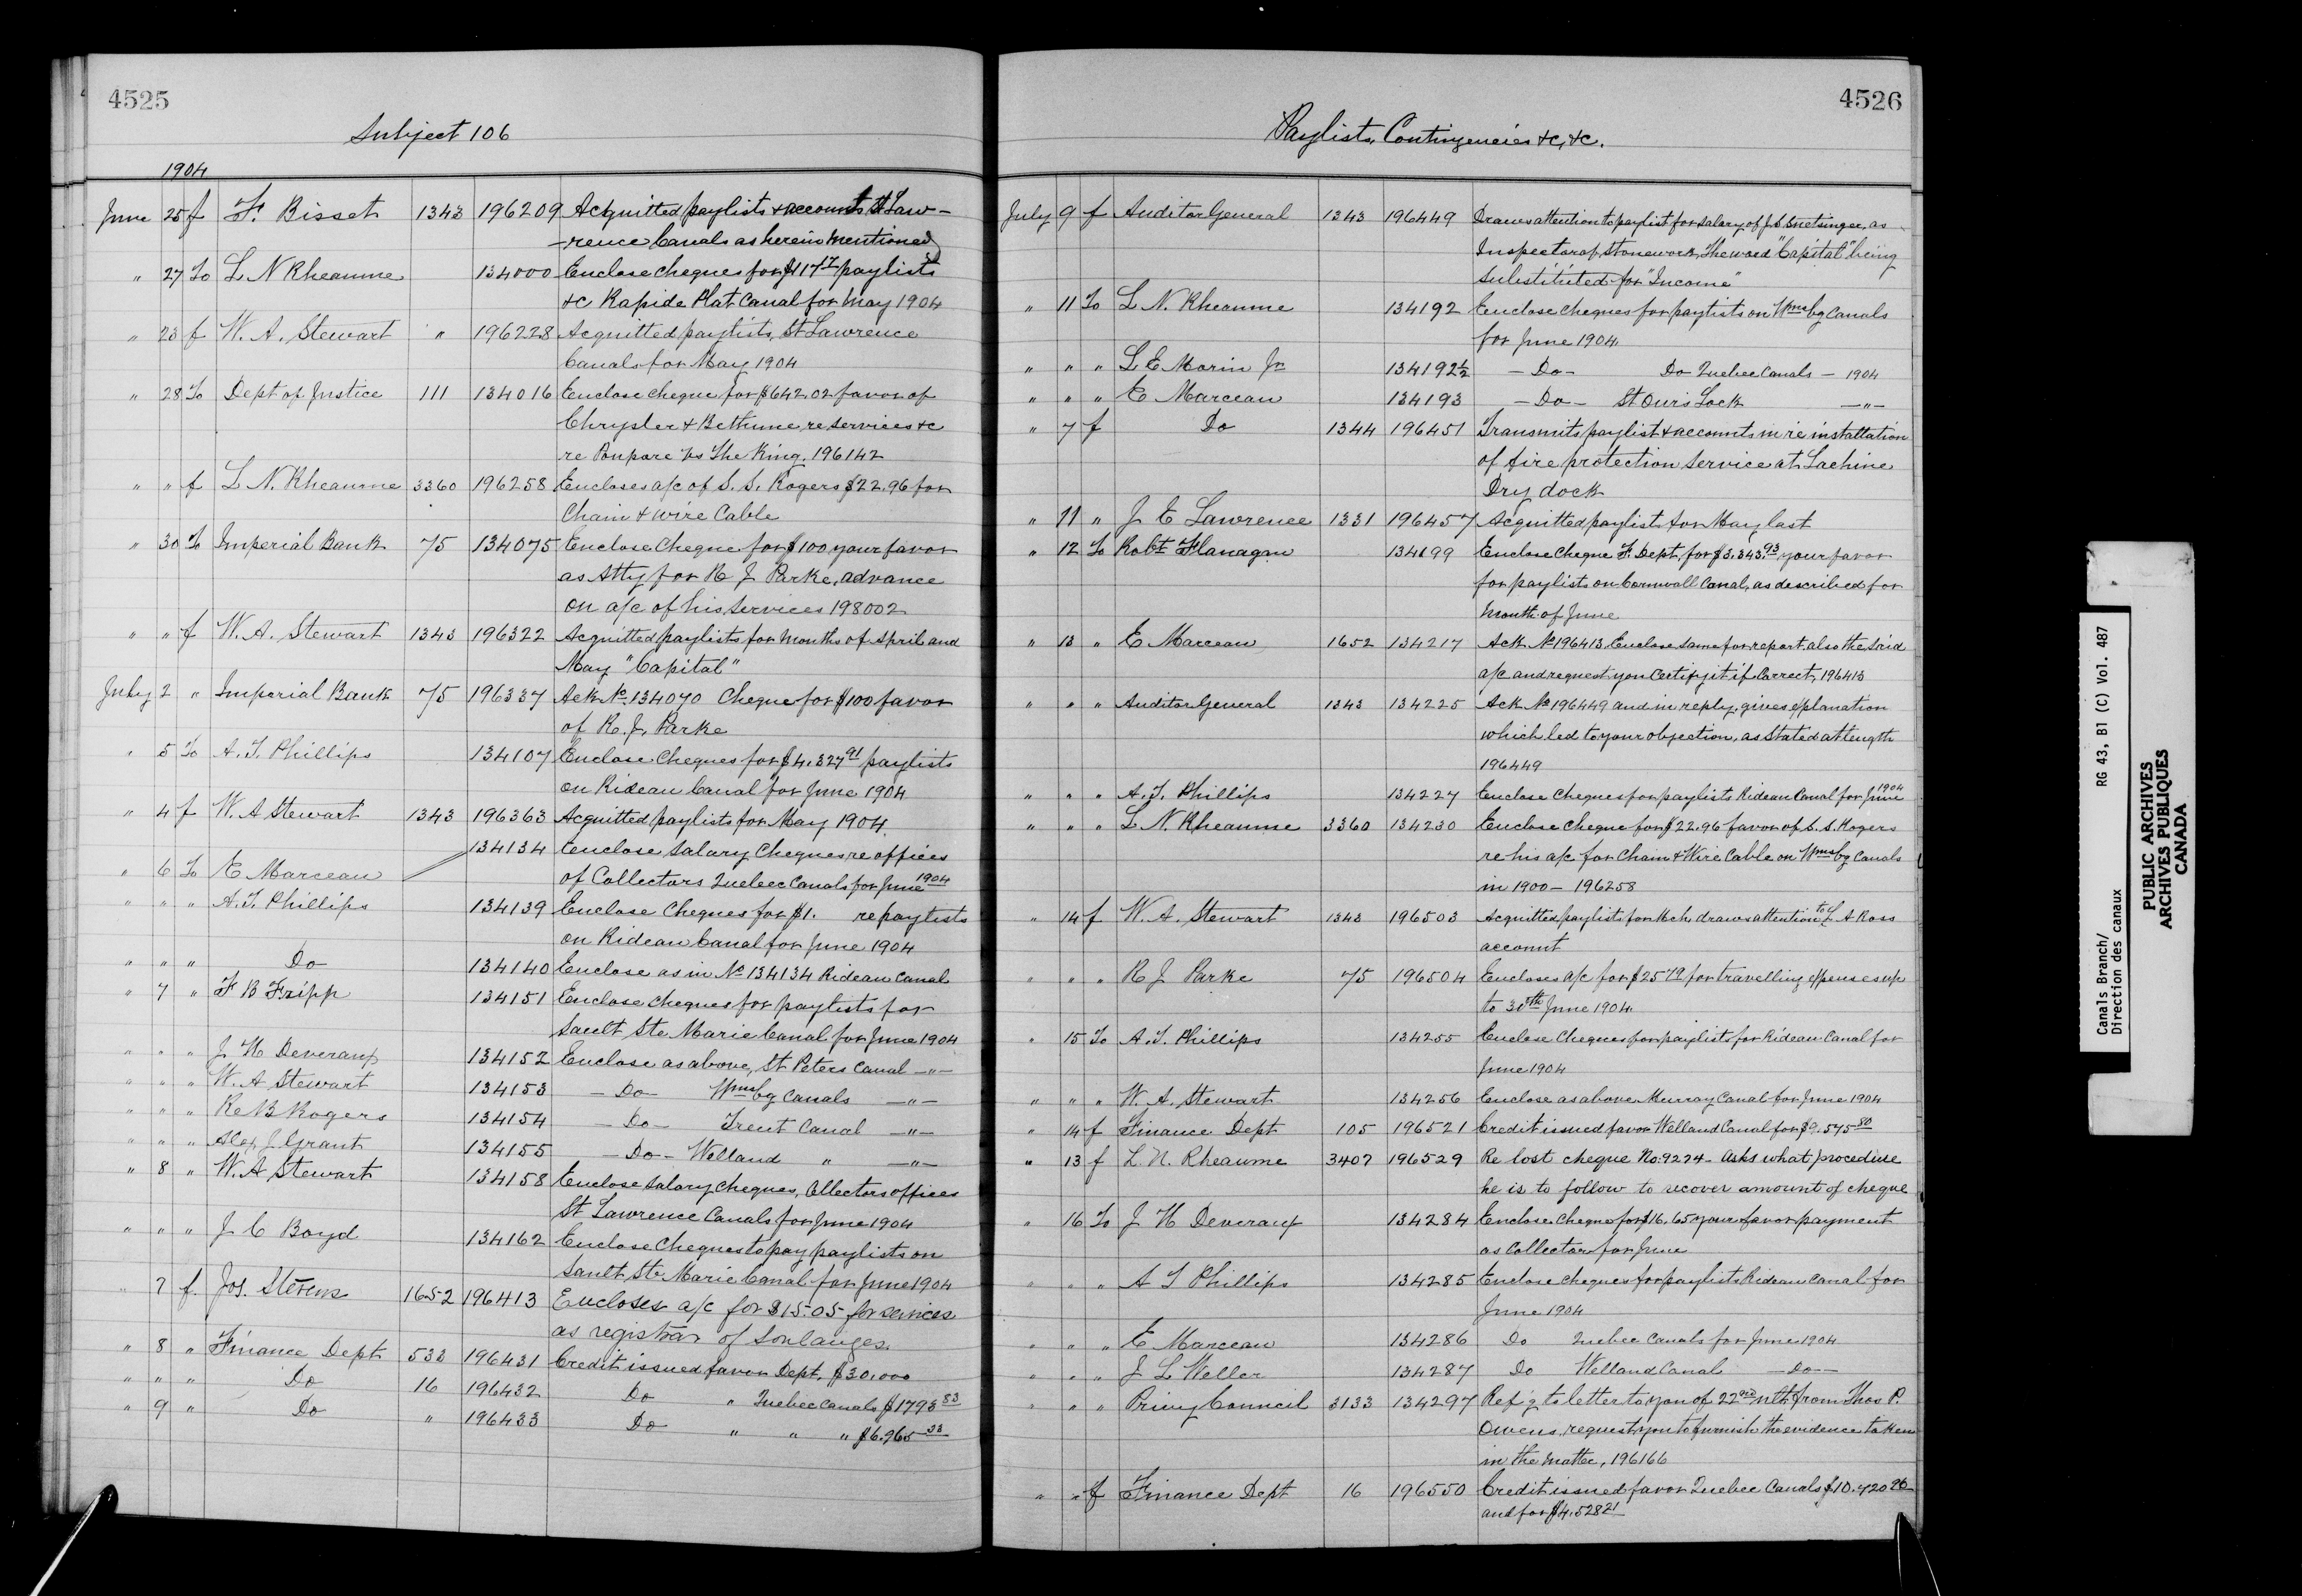 4525
Subject 106
1904
June 25 f F. Bisset 1343 196209 Acquitted paylists & accounts St Law-
-rence Canals as herein mentioned
" 27 To L N Rheaume 134000 Enclose cheques for paylists
&c Rapide Plat Canal for May 1904
" 23 f W. A. Stewart " 196228 Acquitted paylists, St Lawrence
Canals for May 1904
" 28 To Dept of Justice 111 134016 Enclose cheque for $642.02 favor of
Chrysler & Bethune re services &c
re Poupore Vs The King. 196142
" " f L. N. Rheaume 3360 196258 Encloses a/c of S. S. Rogers $22.96 for
Chain & wire Cable
" 30 To Imperial Bank 75 134075 Enclose Cheque for $100 your favor
as Atty for R J Parke, advance
on a/c of his services 198002
" " f W. A. Stewart 1343 196322 Acquitted paylists for months of April and
May "Capital"
July 2 " Imperial Bank 75 196337 Ack No 134070 Cheque for $100 favor
of R. J. Parke
" 5 To A. T. Phillips 134107 Enclose Cheques for $4,327 91 paylists
on Rideau Canal for June 1904
" 4 f W. A Stewart 1343 196363 Acquitted paylists for May 1904.
" 6 To E Marceau 134134 Enclose Salary Cheques re offices
of Collectors Quebec Canals for June 1904
" " " A. T. Phillips 134139 Enclose Cheques for $1. re paylists
on Rideau Canal for June 1904
" " " Do 134140 Enclose as in No 134134 Rideau Canal
" 7 " F B Fripp 134151 Enclose cheques for paylists for
Sault Ste Marie Canal for June 1904
" " " J H Deveraux 134152 Enclose as above, St Peters Canal —"—
" " " W. A Stewart 134153 — Do — Wmsbg Canals —"—
" " " R B Rogers 134154 — Do — Trent Canal —"—
" " " Alex J. Grant 134155 — Do — Welland " —"—
" 8 " W. A Stewart 134158 Enclose Salary Cheques, Collectors offices
St Lawrence Canals for June 1904
" " " J C Boyd 134162 Enclose Cheques to pay paylists on
Sault Ste Marie Canal for June 1904
" 7 f. Jos. Stevens 1652 196413 Encloses a/c for $15.05 for services
as registrar of Soulanges.
" 8 " Finance Dept 533 196431 Credit issued favor Dept. $30,000
" " " Do 16 196432 Do " Quebec Canals $1793 83
" 9 " Do " 196433 Do " " "
4526
Paylists, Contingencies &c, &c.
July 9 f Auditor General 1343 196449 Draws attention to paylist for salary of J. G. Snetsinger, as
Inspector of Stonework, The word "Capital" being
substituted for "Income"
" 11 To L N. Rheaume 134192 Enclose Cheques for paylists on Wmsbg Canals
for June 1904.
" " " L E Morin Jr 134192½ — Do — Do Quebec Canals — 1904
" " " E Marceau 134193 — Do — St Ours Lock —"—
" 7 f Do 1344 196451 Transmits paylist & accounts in re installation
of fire protection service at Lachine
Dry dock
" 11 " J E Lawrence 1331 196457 Acquitted paylist for May last
" 12 To Robt Flanagan 134199 Enclose Cheque F. Dept, for $3,343.93 your favor
for paylists on Cornwall Canal, as described for
month of June
" 13 " E Marceau 1652 134217 Ack No 196413 Enclose same for report, also the said
a/c and request you certify it if correct, 196413
" " " Auditor General 1343 134225 Ack No 196449 and in reply, gives explanation
which led to your objection, as stated at length
196449
" " " A. T. Phillips 134227 Enclose Cheques for paylists Rideau Canal for June 1904
" " " L N. Rheaume 3360 134230 Enclose Cheque for $22.96 favor of S. S. Rogers
re his a/c for Chain & Wire Cable on Wmsbg Canals
in 1900 — 196258
" 14 f W. A. Stewart 1343 196503 Acquitted paylists for Mch, draws attention to L A Ross
account
" " " R J Parke 75 196504 Encloses a/c for for travelling expenses up
to 30th June 1904.
" 15 To A. T. Phillips 134255 Enclose Cheques for paylists for Rideau Canal for
June 1904
" " " W. A. Stewart 134256 Enclose as above Murray Canal for June 1904
" 14 f Finance Dept 105 196521 Credit issued favor Welland Canal for $9,575 80
" 13 f L. N. Rheaume 3407 196529 Re lost cheque No. 9274 — Asks what procedure
he is to follow to recover amount of cheque
" 16 To J H Deveraux 134284 Enclose Cheque for $16.65 your favor payment
as Collector for June
" " " A T Phillips 134285 Enclose cheques for paylists Rideau Canal for
June 1904
" " " E Marceau 134286 Do Quebec Canals for June 1904
" " " J L Weller 134287 Do Welland Canal — Do —
" " " Privy Council 3133 134297 Refg to letter to you of 22nd ulto from Thos P.
Owens, request you to furnish the evidence taken
in the matter, 196166
" " f Finance Dept 16 196550 Credit issued favor Quebec Canals
and for $4,528 21
Canals Branch/ RG 43, B1 (C) Vol. 487
Direction des canaux
PUBLIC ARCHIVES
ARCHIVES PUBLIQUES
CANADA